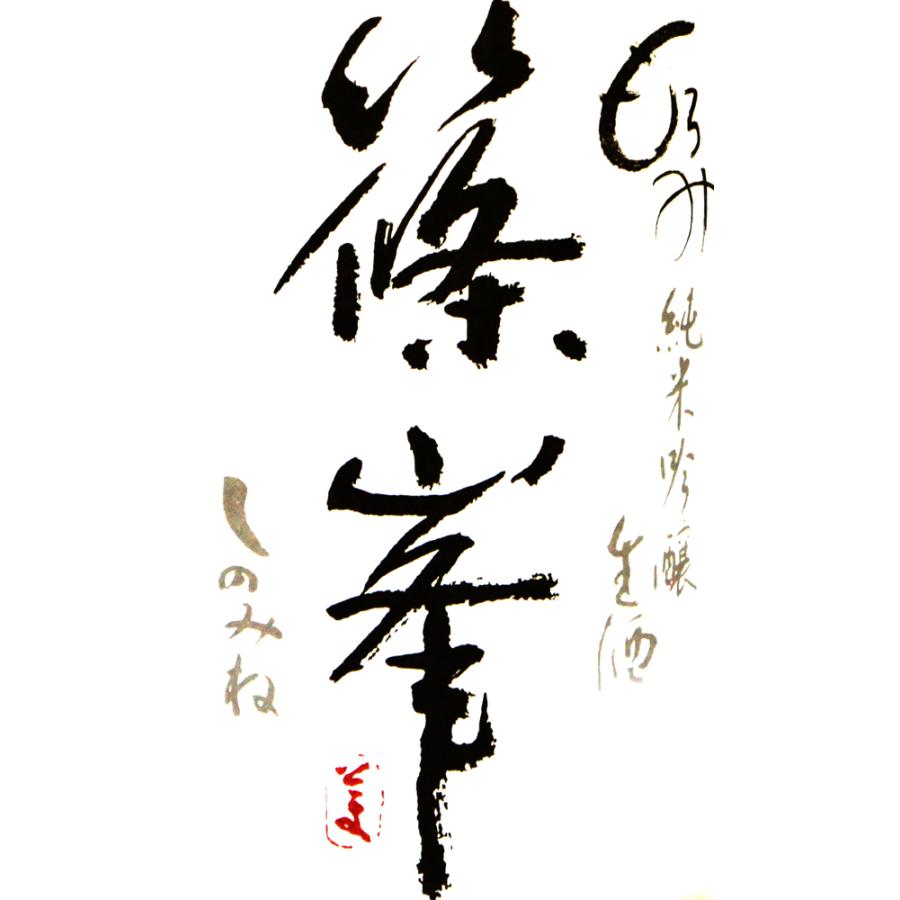 もろみ
純米吟醸
生酒
篠峯
しのみね